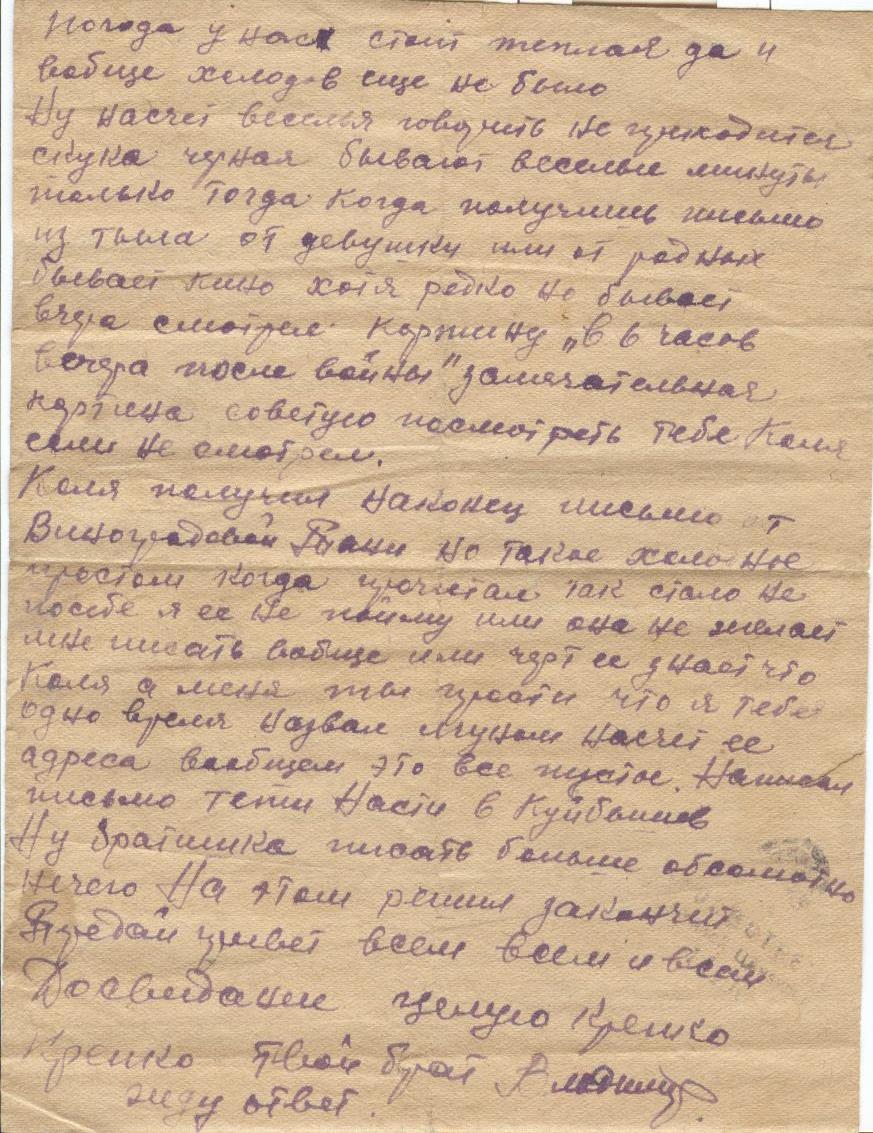 Погода у нас стоит теплая да и
вобще холодов еще не было
Ну насчет веселья говорить не приходится
скука черная бывают веселые минуты
только тогда когда получишь письмо
из тыла от девушки или от родных
бывает кино хотя редко но бывает
вчера смотрел картину „в 6 часов
вечера после войны" замячательная
картина советую посмотреть тебе Коля
если не смотрел.
Коля получил наконец письмо от
Виноградовой Тани но такое холодное
простом когда прочитал так стало не
посебе я ее не пойму или она не желает
мне писать вобще или черт ее знает что
Коля а меня ты прости что я тебя
одно время назвал лгуном насчет ее
адреса вообщем это все пустое. Написал
письмо тети Насти в Куйбышев
Ну братишка писать больше обсолютно
нечего На этом решил закончит
Предай привет всем всем и всем
Досвидание целую крепко
крепко твой брат
жду ответ.